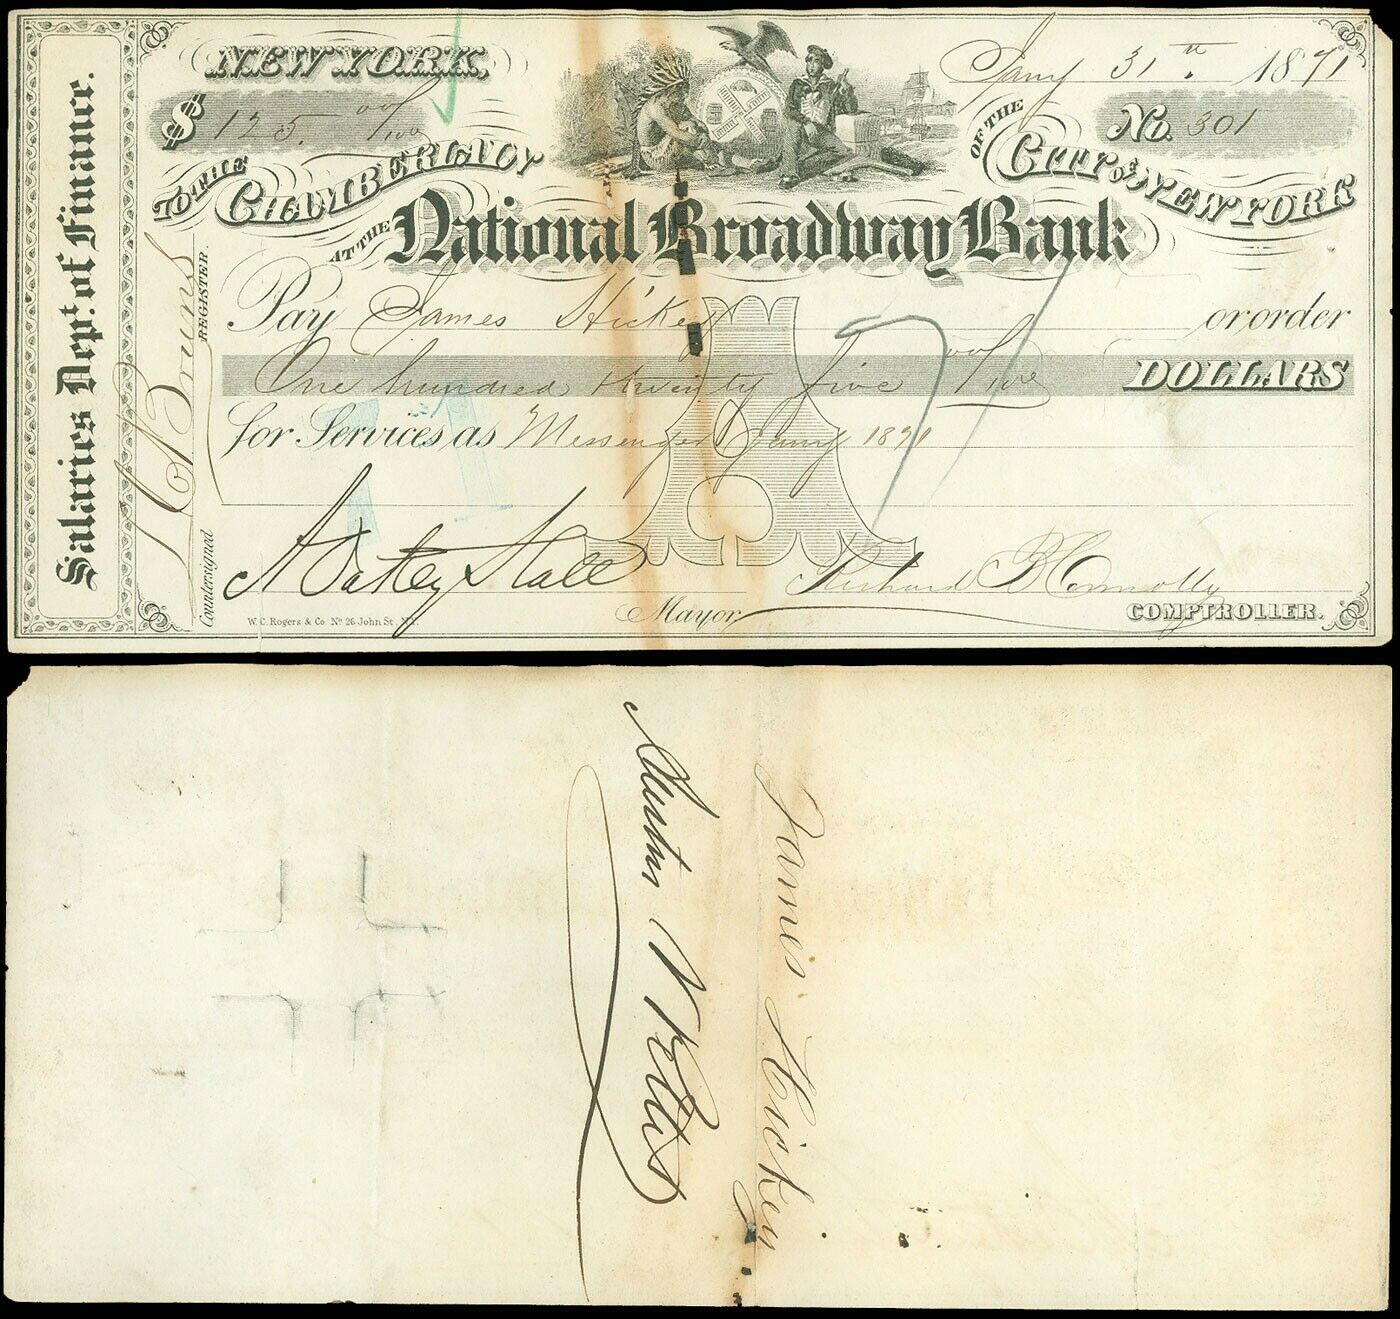 Salaries Dept. of Finance.
NEW YORK,
Jany 31st 1871
$ 125. 00/100
No. 301
TO THE CHAMBERLAIN OF THE CITY OF NEW YORK
AT THE National Broadway Bank
Pay James Hickey or order
One hundred twenty five 00/100 DOLLARS
for Services as Messenger Jany 1871
71
Countersigned
REGISTER.
A Oakey Hall
Mayor
Richard B Connolly
COMPTROLLER.
W. C. Rogers & Co. No 26 John St. N.Y.
James Hickey